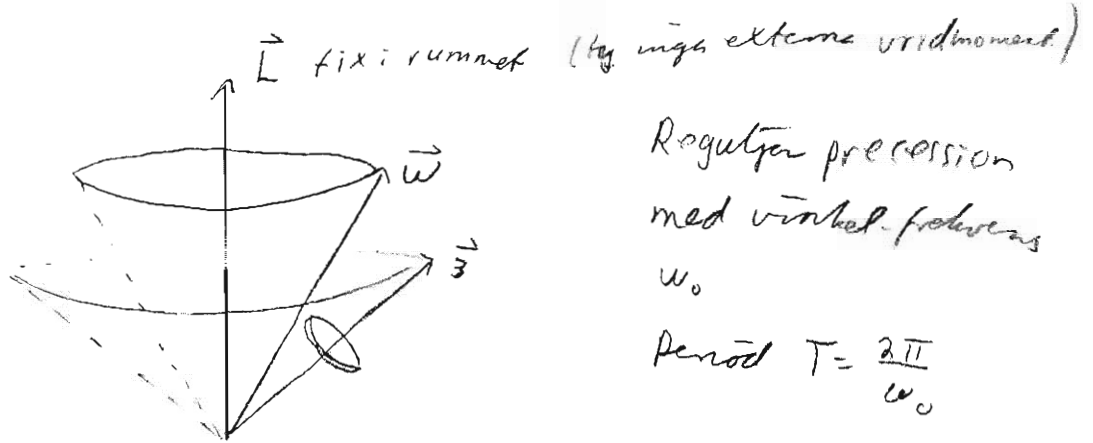 L⃗ fix i rummet (ty inga externa vridmoment)
ω⃗
3⃗
Reguljär precession
med vinkelfrekvens
ω₀
Period T = 2π/ω₀